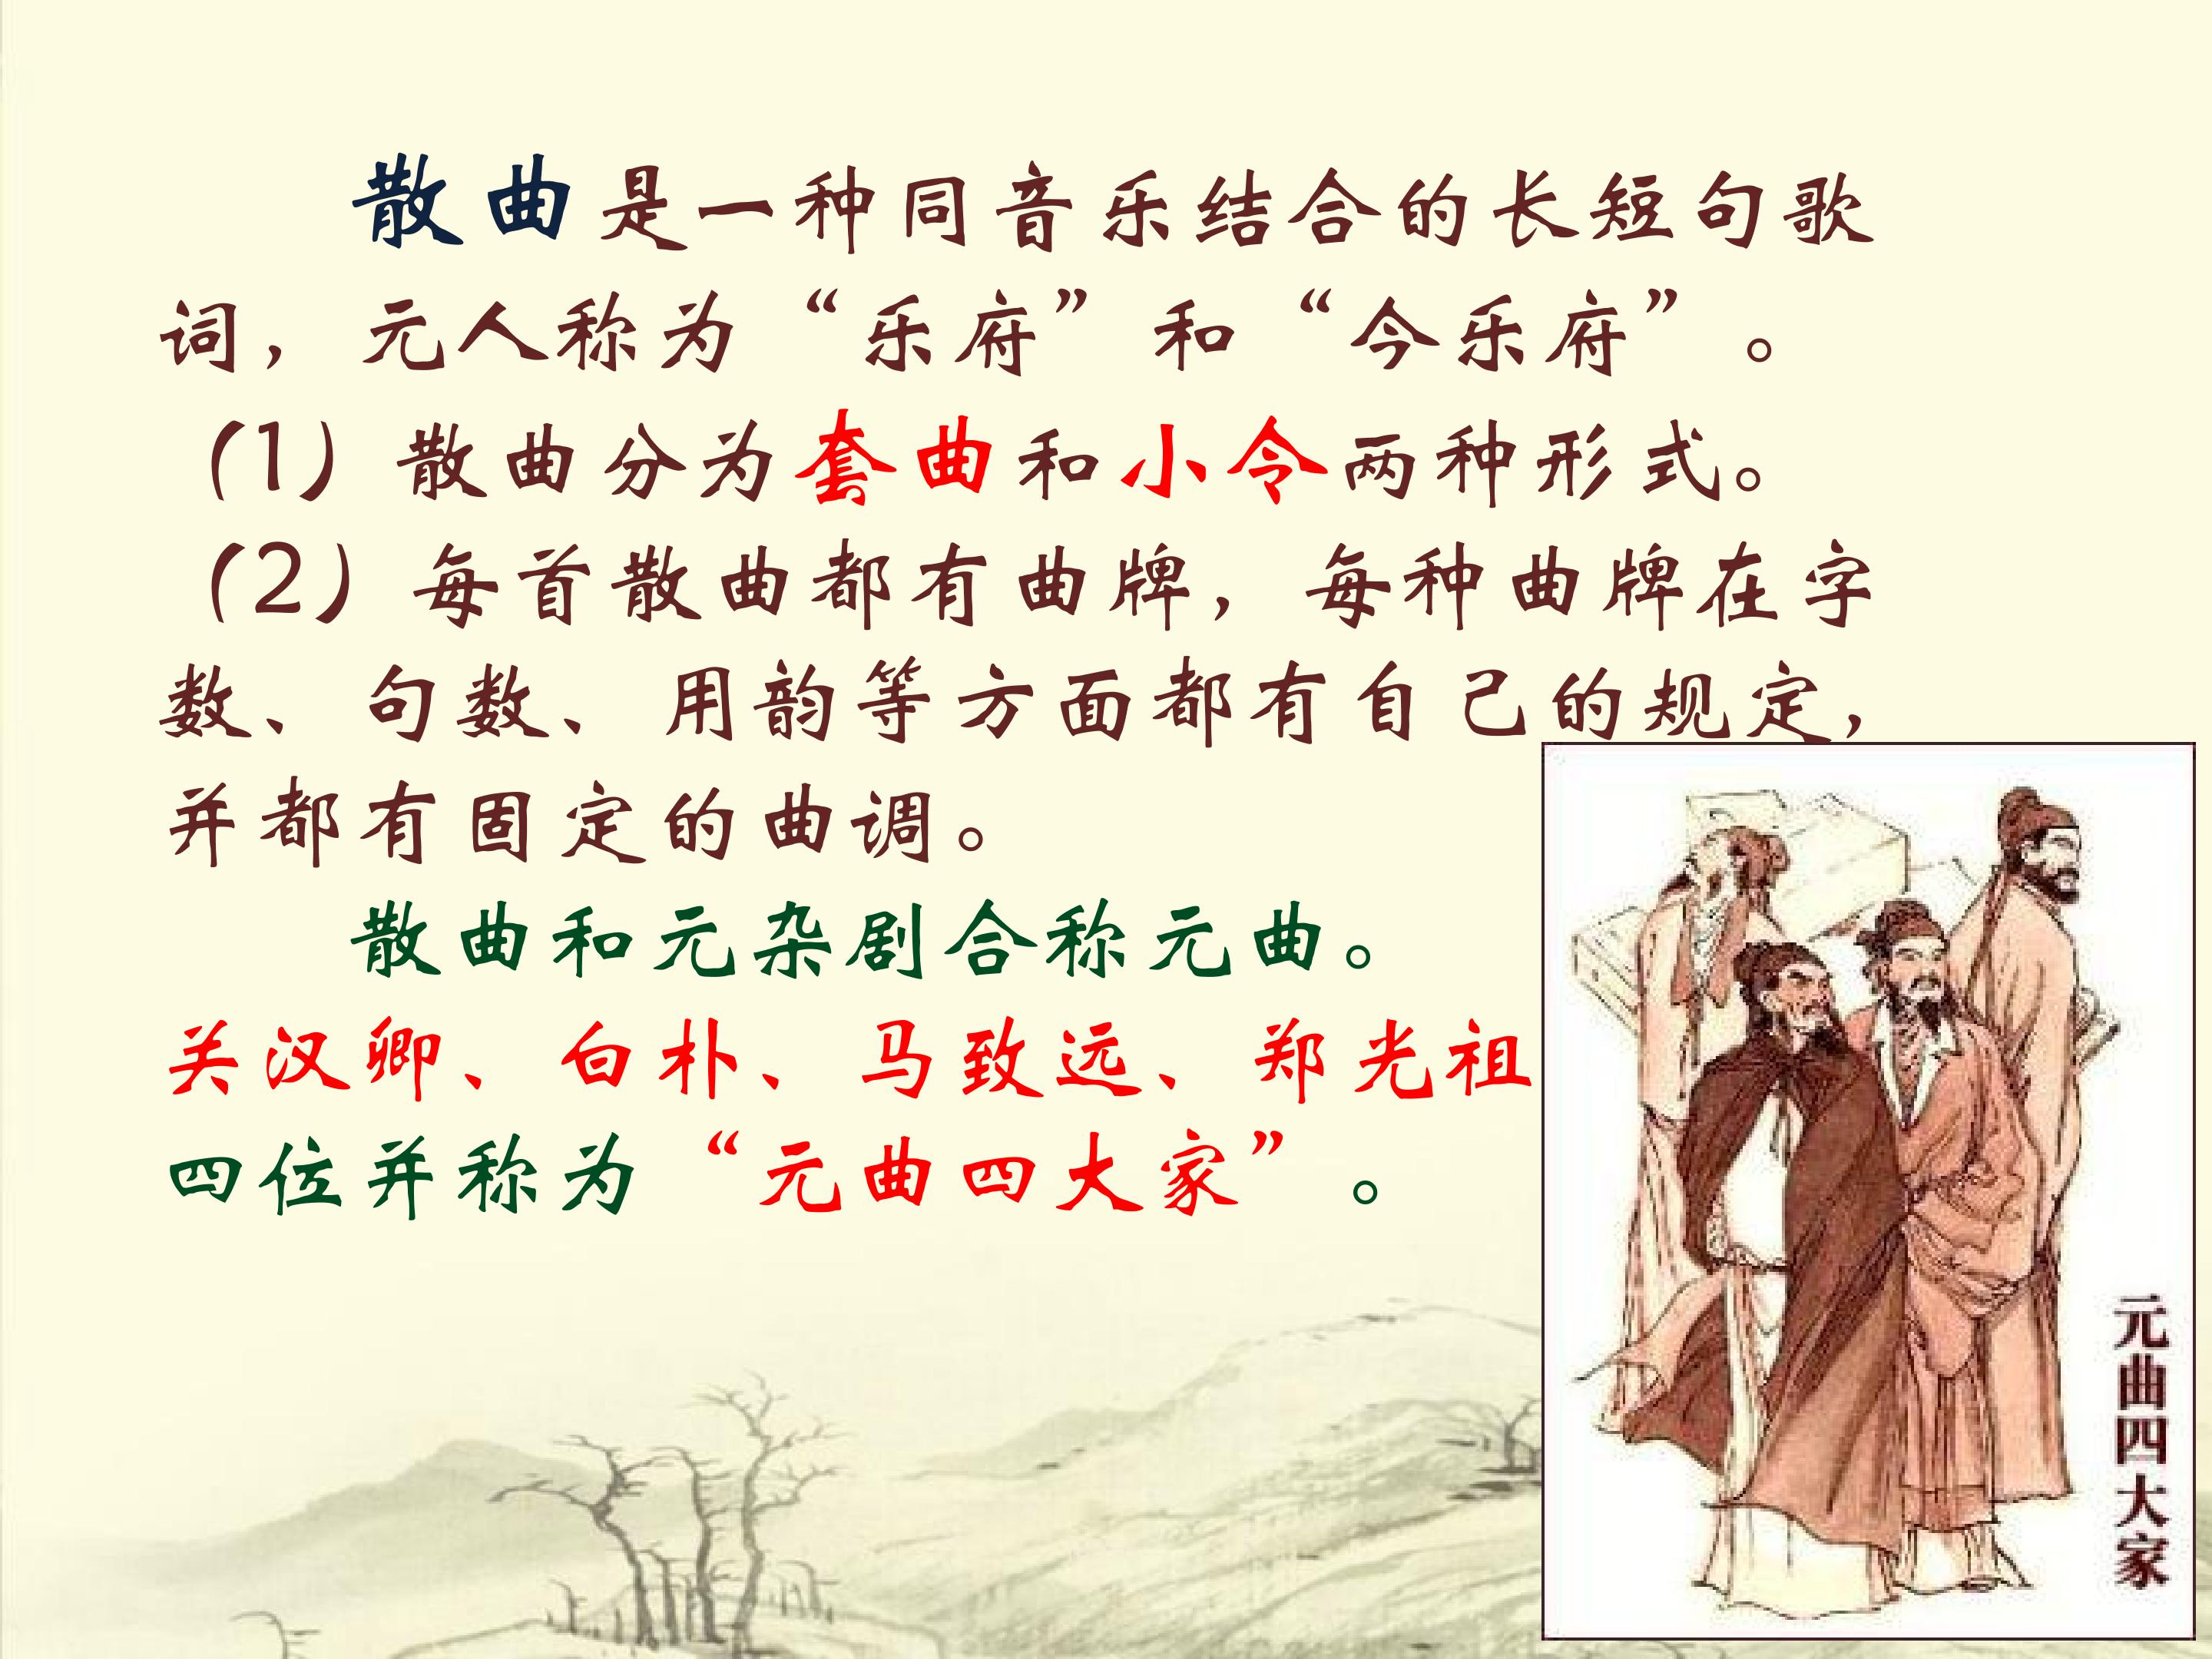 散曲是一种同音乐结合的长短句歌
词，元人称为“乐府”和“今乐府”。
（1）散曲分为套曲和小令两种形式。
（2）每首散曲都有曲牌，每种曲牌在字
数、句数、用韵等方面都有自己的规定，
并都有固定的曲调。
散曲和元杂剧合称元曲。
关汉卿、白朴、马致远、郑光祖
四位并称为“元曲四大家”。
元曲四大家